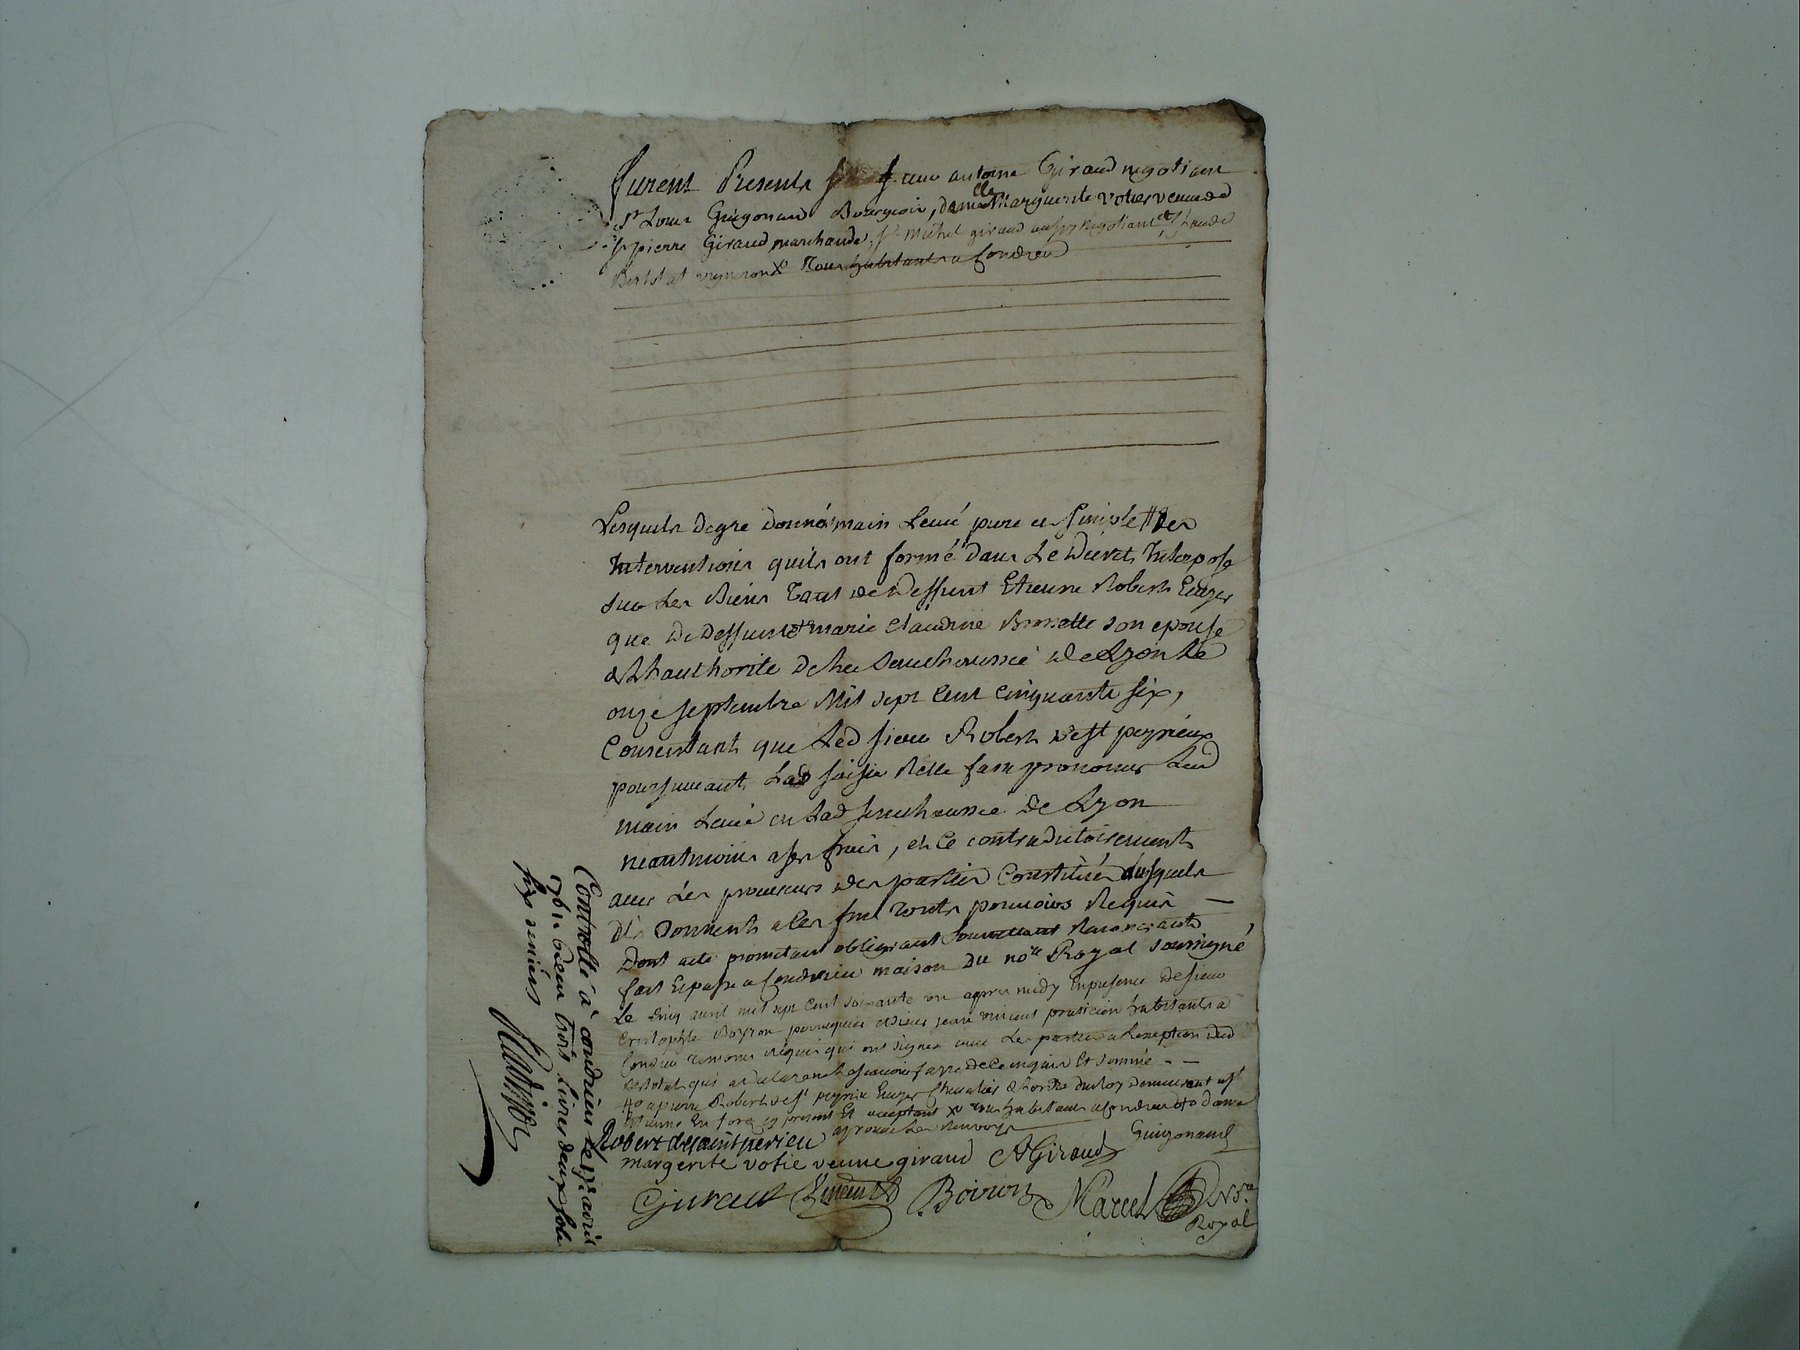 furent Presents sr jean antoine Giraud negotiant
sr Louis Guigonand Bourgeois, damelle Marguerite Votier veuve de
sr pierre Giraud marchande, sr michel giraud aussy negotiant et Claude
Bertolat vigneron x° Tous habitants a Condrieu
Lesquels de gre donnés main Levée pure et simple # des
Interventions quils ont formé dans Le Decret Interposé
sur Les Biens Tant de deffunt Etienne Robert Ecuyer
que de deffunte marie Claudine Brossette son epouse
de Lhauthorité de la Senechaussée de Lyon le
onze septembre Mil sept Cent Cinquante six,
Consentant que Led sieur Robert de st peyrieux
poursuivant Lad saisie Réelle fasse prononcer Lad
main Levée en Lad senechaussée de Lyon
neantmoins a ses frais, et Ce contradictoirement
avec Les procureurs des parties Constitués ausquels
Ils donnent a Ces fins Touts pouvoirs Requis
Dont acte promettant obligeant Soumettant Renonçants
fait Et passé a Condrieu maison du nore Royal soussigné
Le Cinq avril mil sept Cent soixante un apres midy En presence de sieur
Cristophle Boyron perruquier et sieur jean vincent praticien habitants a
Condrieu Temoins requis qui ont signés avec Les parties a Lexception dud
Bertolat qui a declaré ne le scavoir faire de Ce enquis Et sommé - -
# a pierre Robert de st peyrieu Ecuyer Chevalier de Lordre du Roy demeurant a st
Etienne En forez present Et acceptant x° Tous habitants a Condrieu
approuvé Les Renvoys
Robert de saint perieu
Guigonand
margerite votie veuve giraud AGiraud
Giraud Vincent Boiron Marcel Nore
Royal
Controllé à condrieu le avril
1761 Reçu trois livres deux sols
six deniers